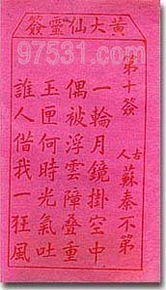 黃大仙靈簽
97531.com
第十簽
古人 蘇秦不第
一輪月鏡掛空中
偶被浮雲障疊重
玉匣何時光氣吐
誰人借我一狂風